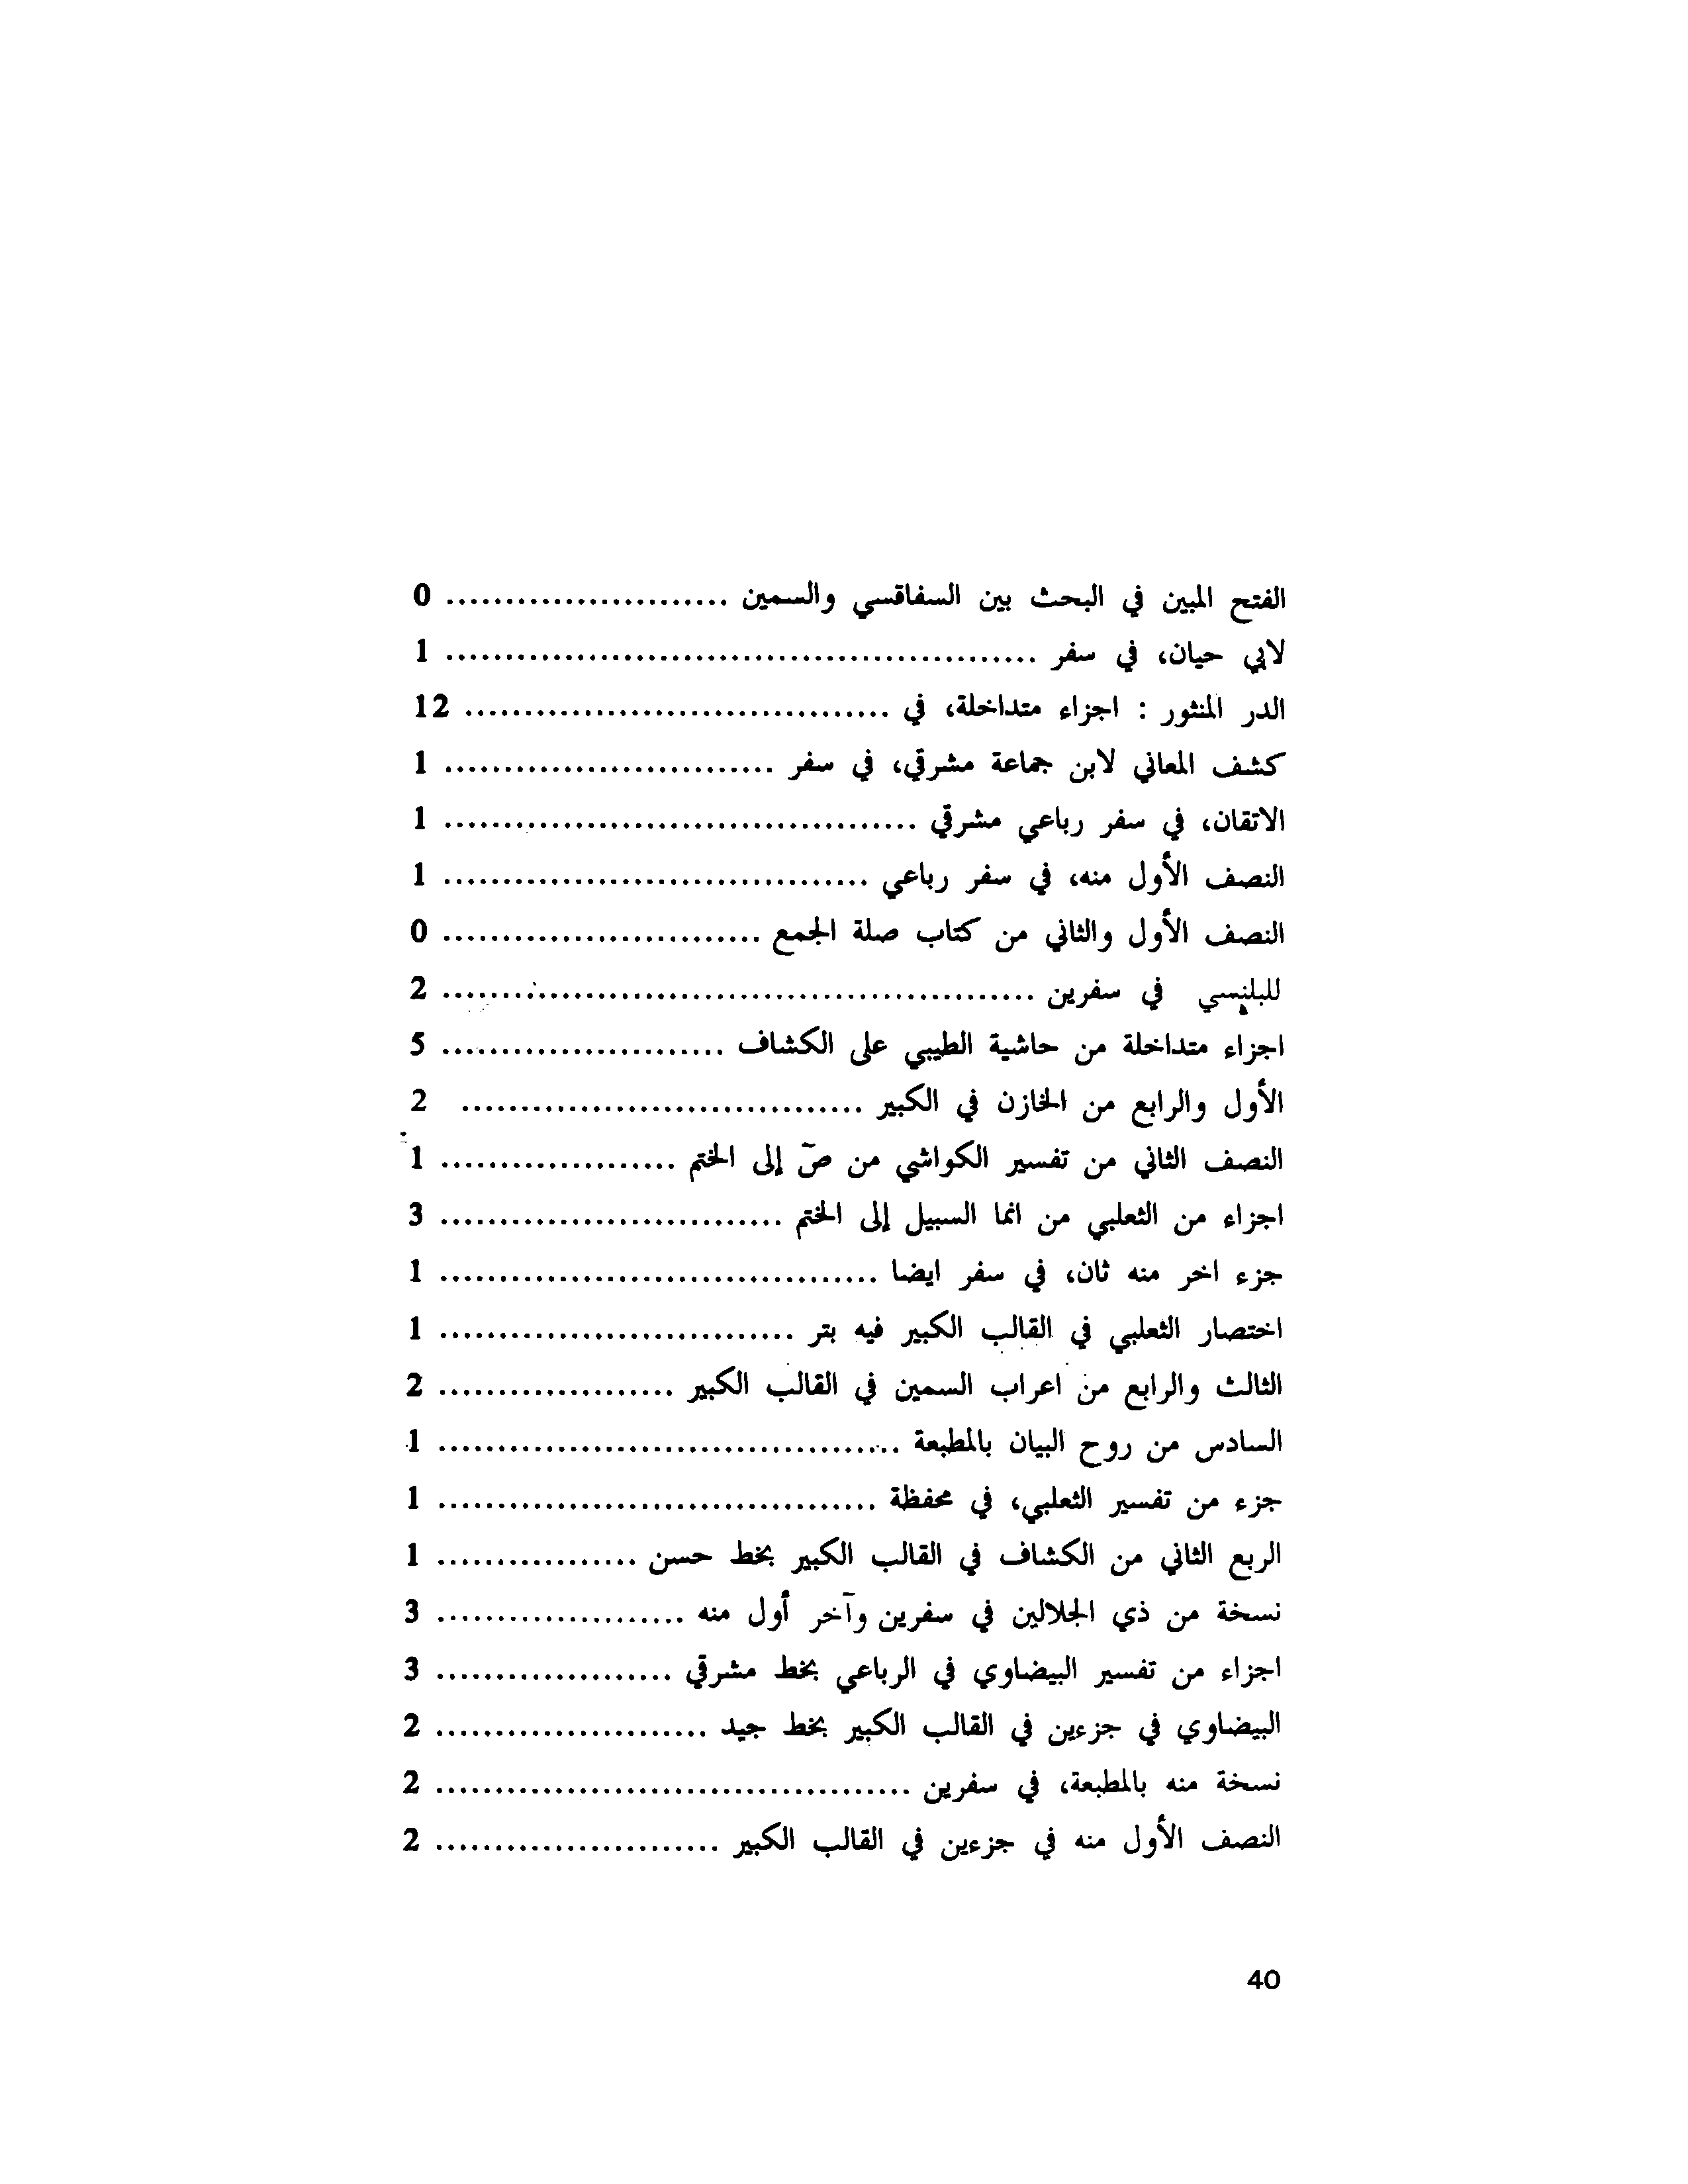 الفتح المبين في البحث بين السفاقسي والسمين ........................ 0
لابي حيان، في سفر .................................................. 1
الدر المنثور : اجزاء متداخلة، في .................................... 12
كشف المعاني لابن جماعة مشرقي، في سفر ............................ 1
الاتقان، في سفر رباعي مشرقي ........................................ 1
النصف الأول منه، في سفر رباعي .................................... 1
النصف الأول والثاني من كتاب صلة الجمع ........................... 0
للبلنسي في سفرين .................................................. 2
اجزاء متداخلة من حاشية الطيبي على الكشاف ........................ 5
الأول والرابع من الخازن في الكبير .................................. 2
النصف الثاني من تفسير الكواشي من صٓ إلى الختم .................... 1
اجزاء من الثعلبي من انما السبيل إلى الختم ............................. 3
جزء اخر منه ثان، في سفر ايضا ..................................... 1
اختصار الثعلبي في القالب الكبير فيه بتر .............................. 1
الثالث والرابع من اعراب السمين في القالب الكبير .................... 2
السادس من روح البيان بالمطبعة ....................................... 1
جزء من تفسير الثعلبي، في محفظة ..................................... 1
الربع الثاني من الكشاف في القالب الكبير بخط حسن ................. 1
نسخة من ذي الجلالين في سفرين وآخر أول منه ..................... 3
اجزاء من تفسير البيضاوي في الرباعي بخط مشرقي .................... 3
البيضاوي في جزءين في القالب الكبير بخط جيد ....................... 2
نسخة منه بالمطبعة، في سفرين ........................................ 2
النصف الأول منه في جزءين في القالب الكبير ........................ 2
40